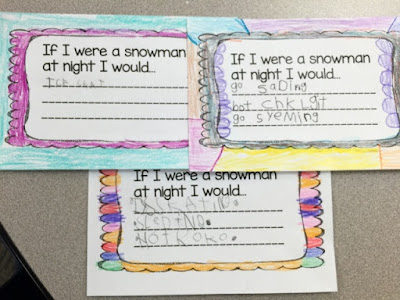 If I were a snowman
at night I would...
If I were a snowman
at night I would...
go sading
hot chklgit
go syeming
If I were a snowman
at night I would...
HOTKOKO.